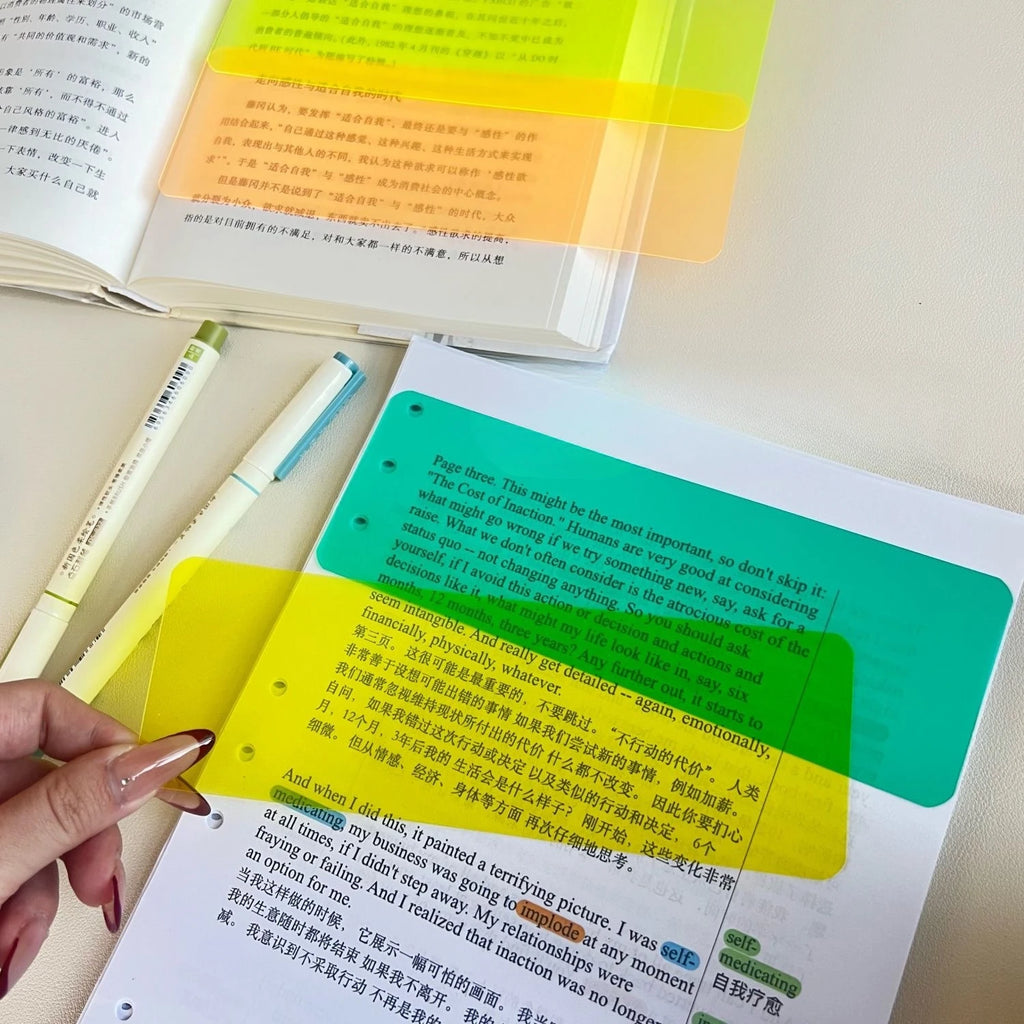 的市场营
“性别、年龄、学历、职业、收入”
“共同的价值观和需求”，新的
象是‘所有’的富裕，那么
‘所有’，而不得不通过
自己风格的富裕”。进入
律感到无比的厌倦”。
一下表情，改变一下生
大家买什么自己就
走向感性与适合自我的时代
藤冈认为，要发挥“适合自我”，最终还是要与“感性”的作
用结合起来，“自己通过这种感觉、这种兴趣、这种生活方式来实现
自我，表现出与其他人的不同，我认为这种欲求可以称作‘感性欲
求’”。于是“适合自我”与“感性”成为消费社会的中心概念。
但是藤冈并不是说到了“适合自我”与“感性”的时代，大众
就分裂为小众，欲求就减退，东西就卖不出去了。“感性欲求的提高，
指的是对目前拥有的不满足，对和大家都一样的不满意，所以从想
Page three. This might be the most important, so don't skip it:
"The Cost of Inaction." Humans are very good at considering
what might go wrong if we try something new, say, ask for a
raise. What we don't often consider is the atrocious cost of the
status quo -- not changing anything. So you should ask
yourself, if I avoid this action or decision and actions and
decisions like it, what might my life look like in, say, six
months, 12 months, three years? Any further out, it starts to
seem intangible. And really get detailed -- again, emotionally,
financially, physically, whatever.
第三页。这很可能是最重要的，不要跳过。“不行动的代价”。人类
非常善于设想可能出错的事情 如果我们尝试新的事情，例如加薪。
我们通常忽视维持现状所付出的代价 什么都不改变。因此你要扪心
自问，如果我错过这次行动或决定 以及类似的行动和决定，6个
月，12个月，3年后我的 生活会是什么样子？刚开始，这些变化非常
细微。但从情感、经济、身体等方面 再次仔细地思考。
And when I did this, it painted a terrifying picture. I was self-
medicating, my business was going to implode at any moment
at all times, if I didn't step away. My relationships were
fraying or failing. And I realized that inaction was no longer
an option for me.
当我这样做的时候，它展示一幅可怕的画面。我当
我的生意随时都将结束 如果我不离开。我的
减。我意识到不采取行动 不再是我的
self-
medicating
自我疗愈